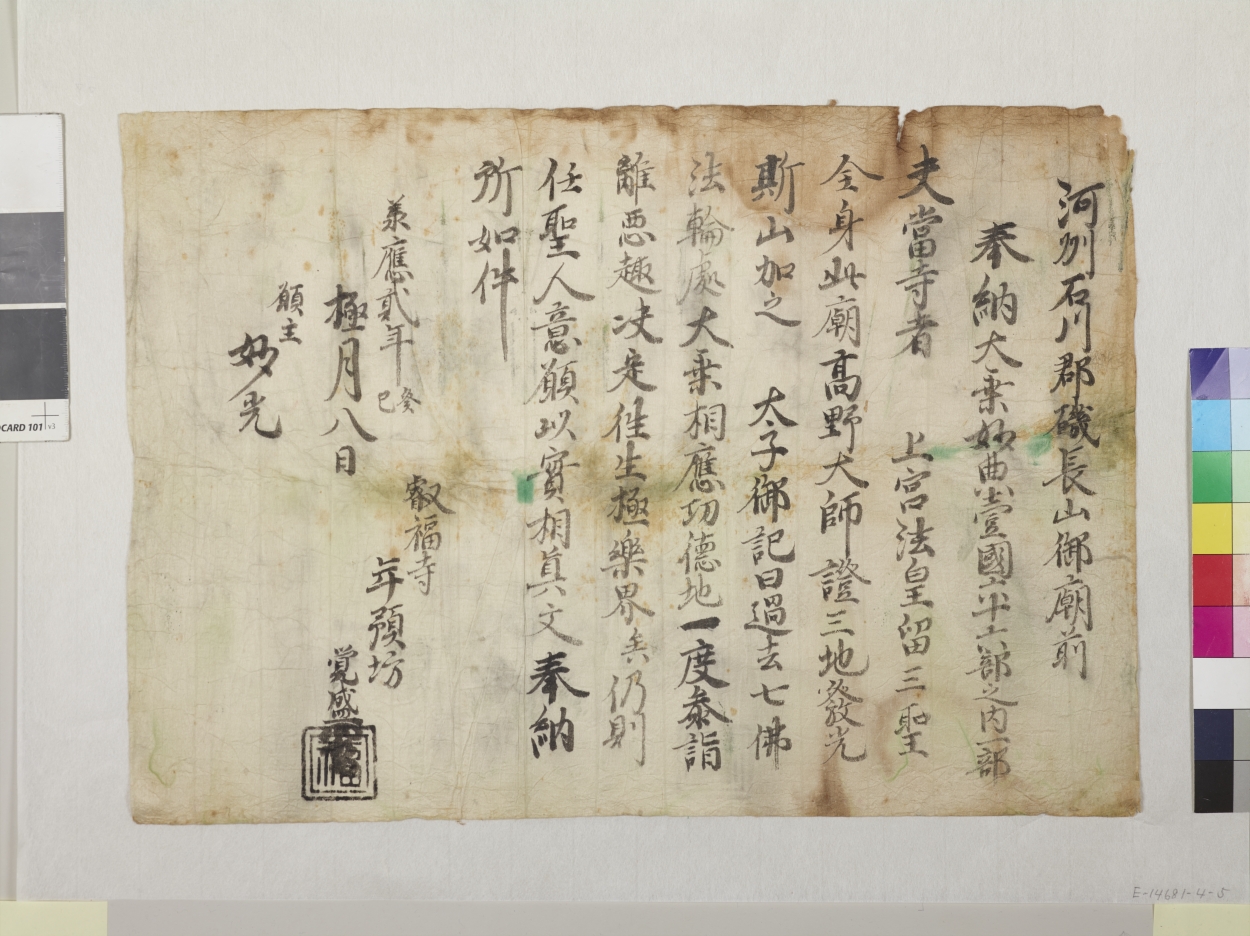 河州石川郡磯長山御廟前
奉納大乗妙典壹國六十六部之内一部
夫當寺者　上宮法皇留三聖
全身此廟高野大師證三地發光
斯山加之　太子御記曰過去七佛
法輪處大乗相應功德地一度叅詣
離悪趣决定徃生極樂界矣仍則
任聖人意願以實相眞文奉納
所如件
承應貳年癸巳
極月八日
願主
妙光
叡福寺
年預坊
覚盛
福
CARD 101 v3
E-14681-4-5